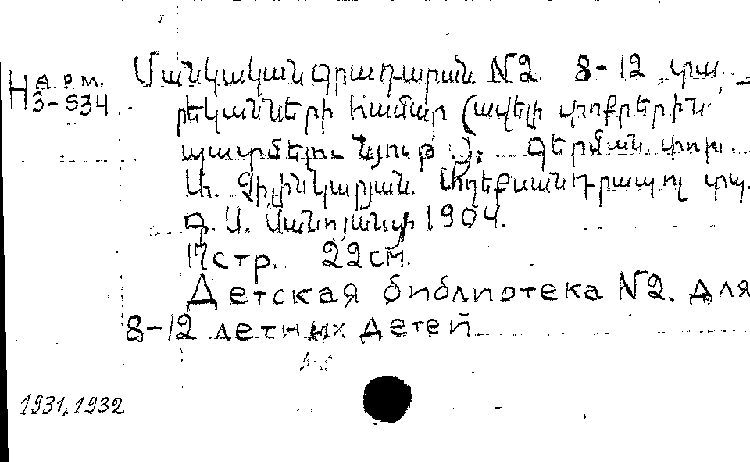 Н арм.
3-534
Մանկական գրադարան N2. 8-12 տա_
րեկանների համար (ավելի փոքրերին
պատմելու նյութ). Գերման. փոխ.
Ա. Զիլինկարյան. Աղեքսանդրապոլ տպ.
Գ. Ս. Սանոյանցի 1904.
17 стр. 22 см.
Детская библиотека N2. для
8-12 летных детей
1931, 1932